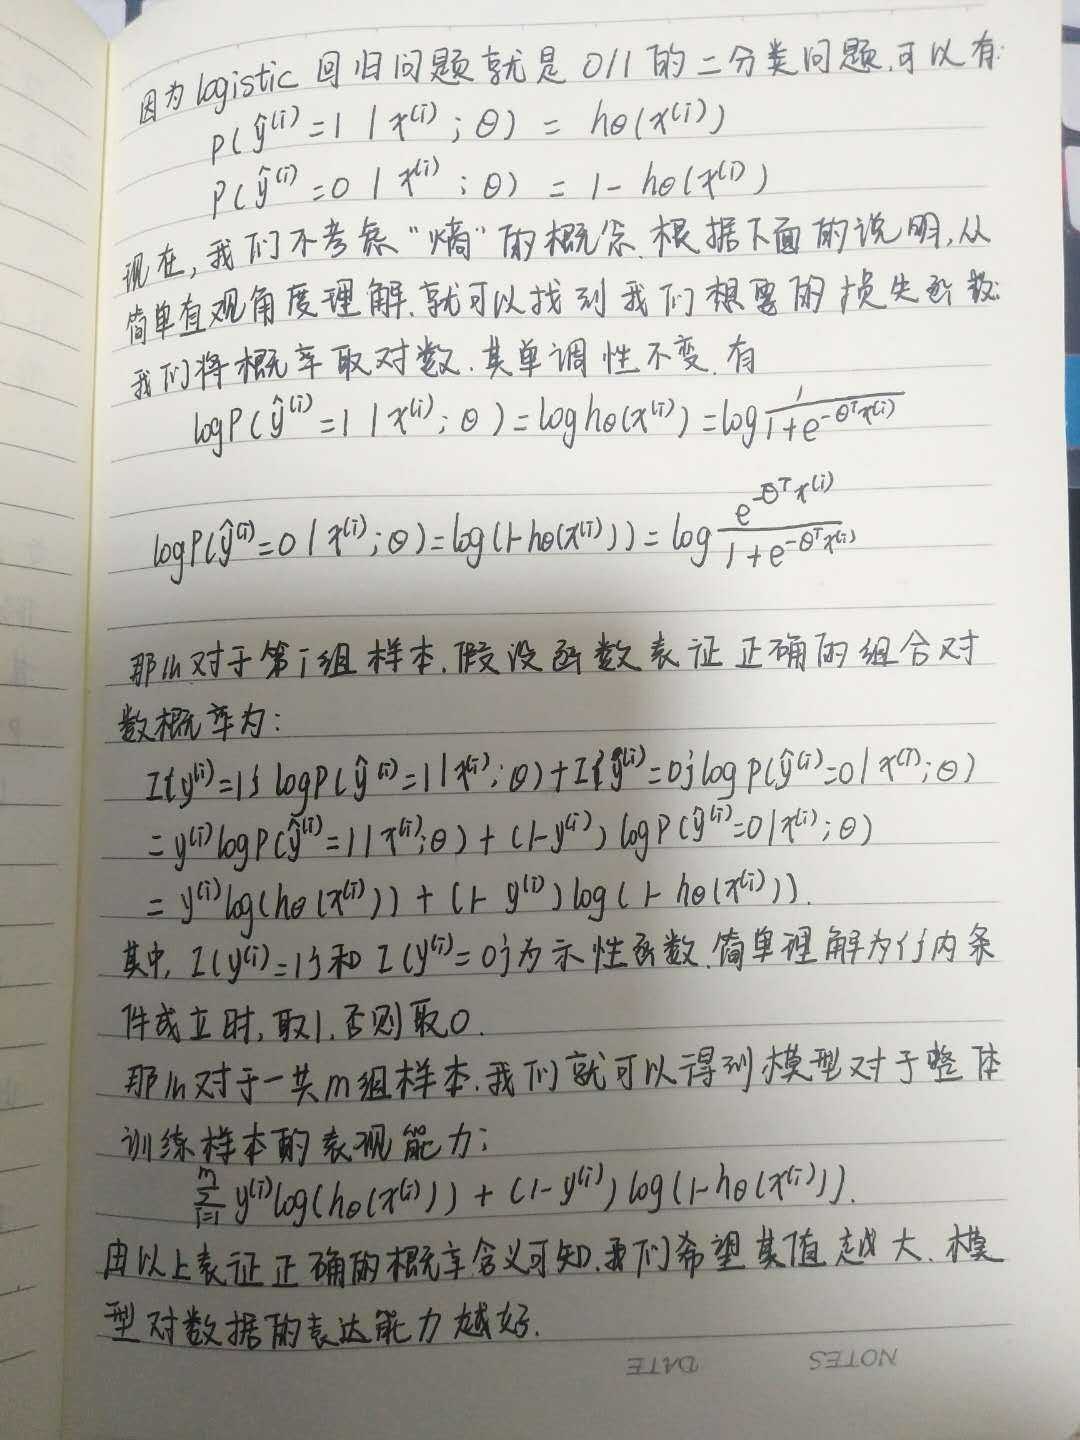 因为logistic 回归问题就是 0/1 的二分类问题,可以有:
P(ŷ⁽ⁱ⁾=1 | x⁽ⁱ⁾;θ) = hθ(x⁽ⁱ⁾)
P(ŷ⁽ⁱ⁾=0 | x⁽ⁱ⁾;θ) = 1-hθ(x⁽ⁱ⁾)
现在,我们不考虑“熵”的概念,根据下面的说明,从
简单直观角度理解,就可以找到我们想要的损失函数:
我们将概率取对数,其单调性不变,有
logP(ŷ⁽ⁱ⁾=1 | x⁽ⁱ⁾;θ)=loghθ(x⁽ⁱ⁾)=log 1/(1+e^(-θᵀx⁽ⁱ⁾))
logP(ŷ⁽ⁱ⁾=0 | x⁽ⁱ⁾;θ)=log(1-hθ(x⁽ⁱ⁾))=log e^(-θᵀx⁽ⁱ⁾)/(1+e^(-θᵀx⁽ⁱ⁾))
那么对于第i组样本,假设函数表证正确的组合对
数概率为:
I{y⁽ⁱ⁾=1}logP(ŷ⁽ⁱ⁾=1|x⁽ⁱ⁾;θ)+I{y⁽ⁱ⁾=0}logP(ŷ⁽ⁱ⁾=0|x⁽ⁱ⁾;θ)
=y⁽ⁱ⁾logP(ŷ⁽ⁱ⁾=1|x⁽ⁱ⁾;θ)+(1-y⁽ⁱ⁾)logP(ŷ⁽ⁱ⁾=0|x⁽ⁱ⁾;θ)
=y⁽ⁱ⁾log(hθ(x⁽ⁱ⁾))+(1-y⁽ⁱ⁾)log(1-hθ(x⁽ⁱ⁾)).
其中, I{y⁽ⁱ⁾=1}和 I{y⁽ⁱ⁾=0}为示性函数,简单理解为{}内条
件成立时,取1,否则取0.
那么对于一共m组样本,我们就可以得到模型对于整体
训练样本的表现能力:
∑ᵢ₌₁ᵐ y⁽ⁱ⁾log(hθ(x⁽ⁱ⁾))+(1-y⁽ⁱ⁾)log(1-hθ(x⁽ⁱ⁾)).
由以上表证正确的概率含义可知,我们希望其值越大,模
型对数据的表达能力越好.
NOTES DATE